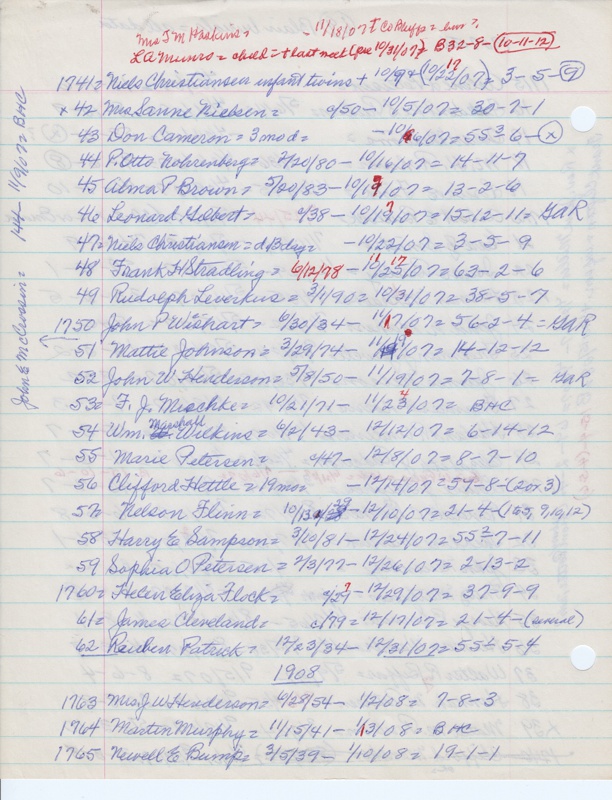 Mrs J M Haskins = - 11/18/07
LA Munro = child = + last meet (pre 10/31/07) B32-8-(10-11-12)
1741 = Niels Christiansen infant twins + 10/9 + (10/22/07) 17 3-5-(9)
x 42 Mrs Sanne Nielsen = c/50 - 10/5/07 = 30-7-1
43 Don Cameron = 3 mo d = - 10/16/07 = 55½-6-(x)
44 P. Otto Nohrenberg = 5/20/80 - 10/16/07 = 14-11-7
45 Alma P Brown = 5/20/83 - 10/19/07 = 13-2-6
46 Leonard = c/38 - 10/19/07 = 15-12-11 = GAR
47 = Niels Christiansen = d Bday = - 10/22/07 = 3-5-9
48 Frank H Stradling = 6/12/78 - 11/25/07 17 = 62-2-6
49 Rudolph Leverkus = 3/1/90 = 10/31/07 = 38-5-7
1750 John P Wishart = 6/30/34 - 11/17/07 = 56-2-4 = GAR
51 Mattie Johnson = 3/29/74 - 11/19/07 = 14-12-12
52 John W Henderson = 5/8/50 - 11/19/07 = 7-8-1 = GAR
53 = F. J. Mischke = 10/21/71 - 11/23/07 4 = BHC
54 Wm. Marshall Wilkins = 6/2/43 - 12/12/07 = 6-14-12
55 Marie Petersen = c/47 - 12/8/07 = 8-7-10
56 Clifford Hottle = 19 mo = - 12/14/07 = 59-8-(2 or 3)
57 Nelson Flinn = 10/13/29 - 12/10/07 = 21-4-(1&5, 9, 10, 12)
58 Harry E Sampson = 3/10/81 - 12/24/07 = 55½-7-11
59 Sophia O Petersen = 2/3/77 - 12/26/07 = 2-13-2
1760 = Helen Eliza Flock = c/27? - 12/29/07 = 37-9-9
61 = James Cleveland = c/79 = 12/17/07 = 21-4-(several)
62 Reuben Patrick = 12/23/34 - 12/31/07 = 55½-5-4
1908
1763 Mrs J W Henderson = 6/28/54 - 1/2/08 = 7-8-3
1764 Martin Murphy = 11/15/41 - 1/3/08 = BHC
1765 Newell E Bump = 3/5/39 - 1/10/08 = 19-1-1
John E = 144 - 11/9/07 = BHC